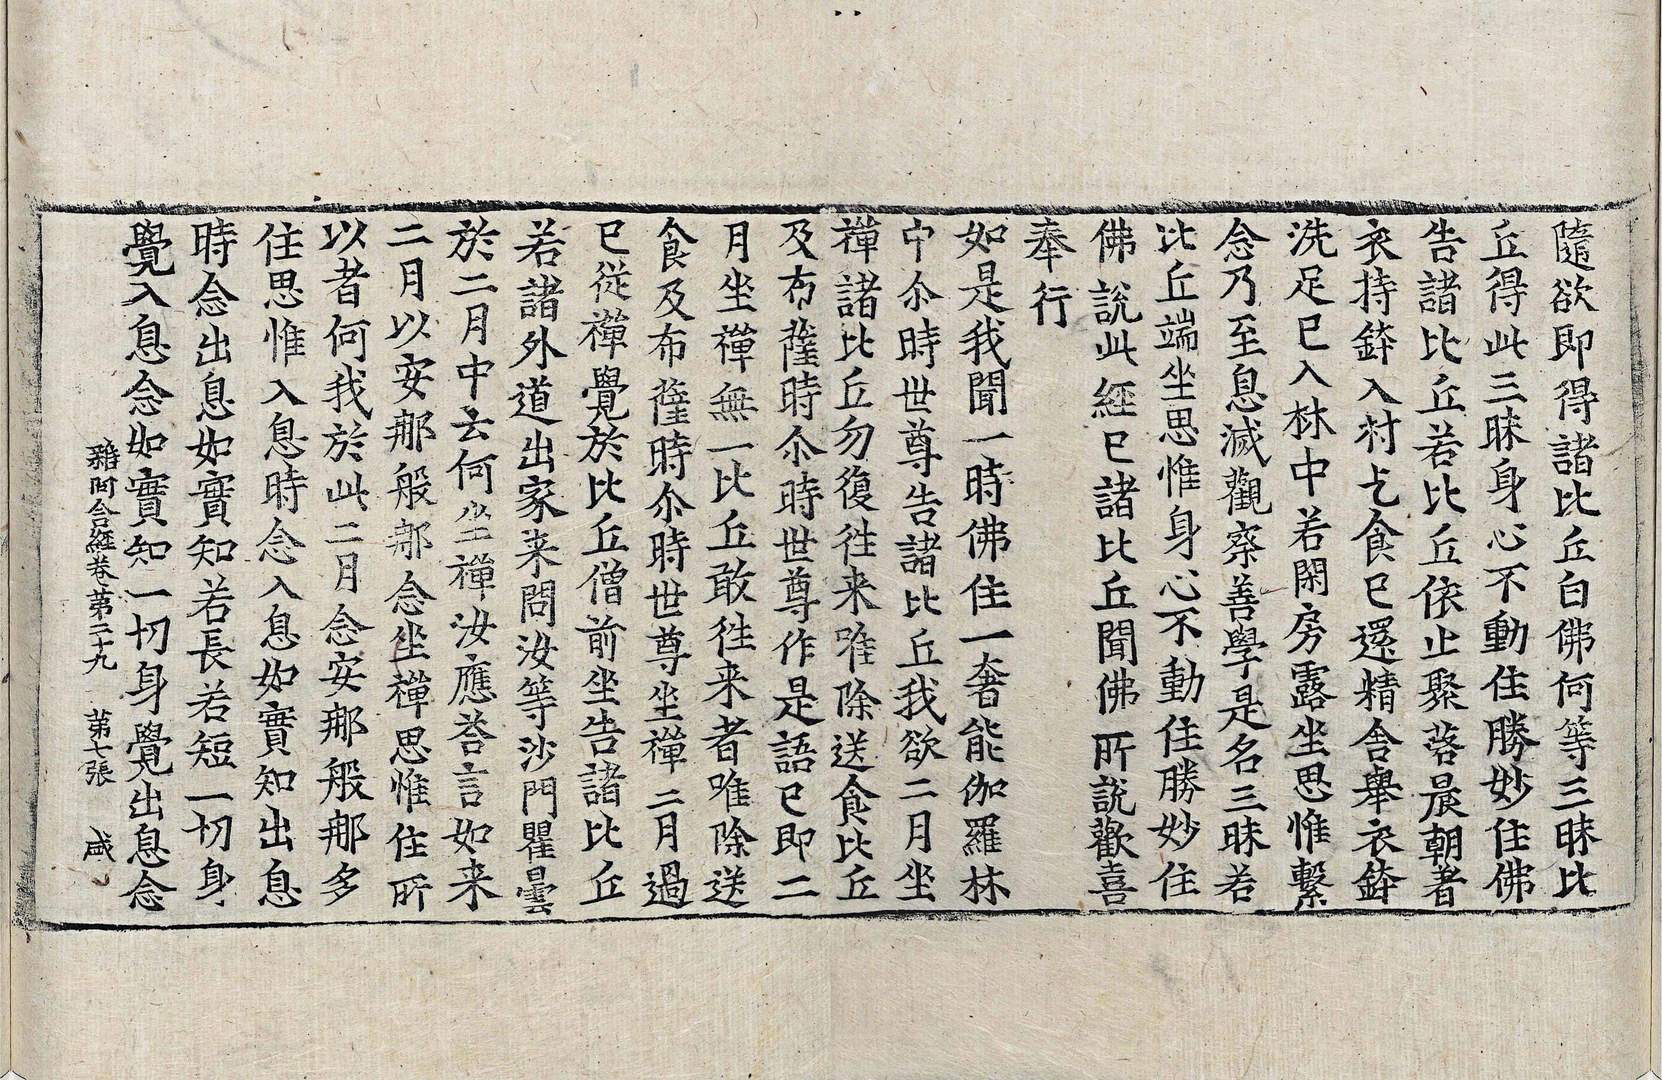 隨欲即得諸比丘白佛何等三昧比
丘得此三昧身心不動住勝妙住佛
告諸比丘若比丘依止聚落晨朝著
衣持鉢入村乞食已還精舍舉衣鉢
洗足已入林中若閑房露坐思惟繫
念乃至息滅觀察善學是名三昧若
比丘端坐思惟身心不動住勝妙住
佛說此經已諸比丘聞佛所說歡喜
奉行
如是我聞一時佛住一奢能伽羅林
中尒時世尊告諸比丘我欲二月坐
禪諸比丘勿復徃来唯除送食比丘
及布薩時尒時世尊作是語已即二
月坐禪無一比丘敢徃来者唯除送
食及布薩時尒時世尊坐禪二月過
已從禪覺於比丘僧前坐告諸比丘
若諸外道出家来問汝等沙門瞿曇
於二月中云何坐禪汝應荅言如来
二月以安那般那念坐禪思惟住所
以者何我於此二月念安那般那多
住思惟入息時念入息如實知出息
時念出息如實知若長若短一切身
覺入息念如實知一切身覺出息念
雜阿含經卷第二十九 第七張 咸